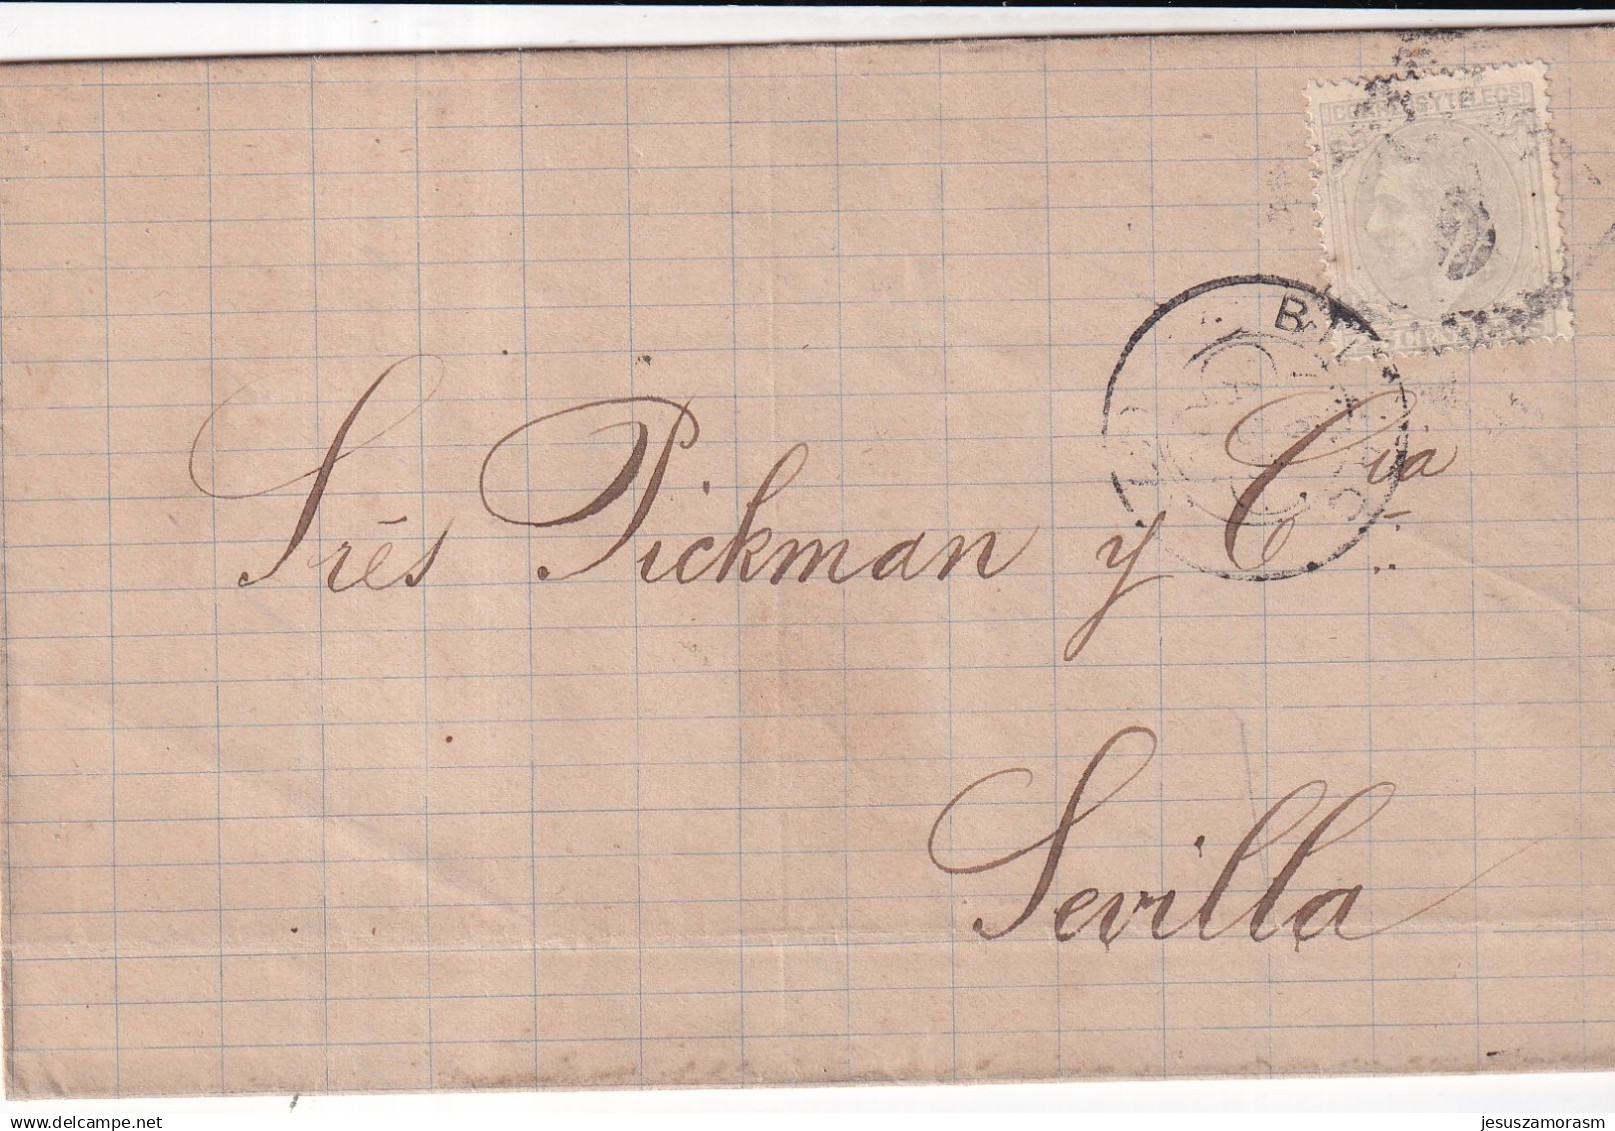 CORREOS Y TELEGS
BIL
Srēs Pickman y Cia
Sevilla
www.delcampe.net
jesuszamorasm